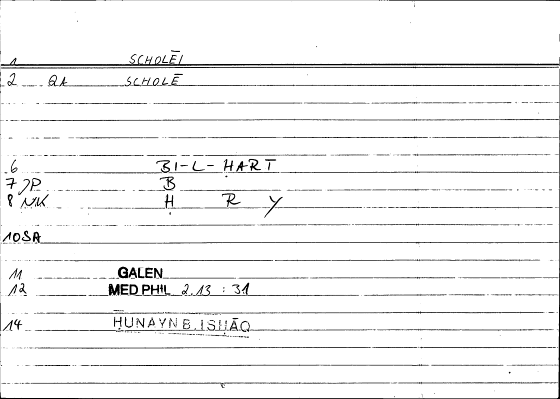 1 SCHOLĒI
2 QA SCHOLĒ
6 BI-L-ḤART
7 JP B
8 NK Ḥ R Y
10 SA
11 GALEN
12 MED PHIL 2.13 : 31
14 ḤUNAYN B. ISḤĀQ